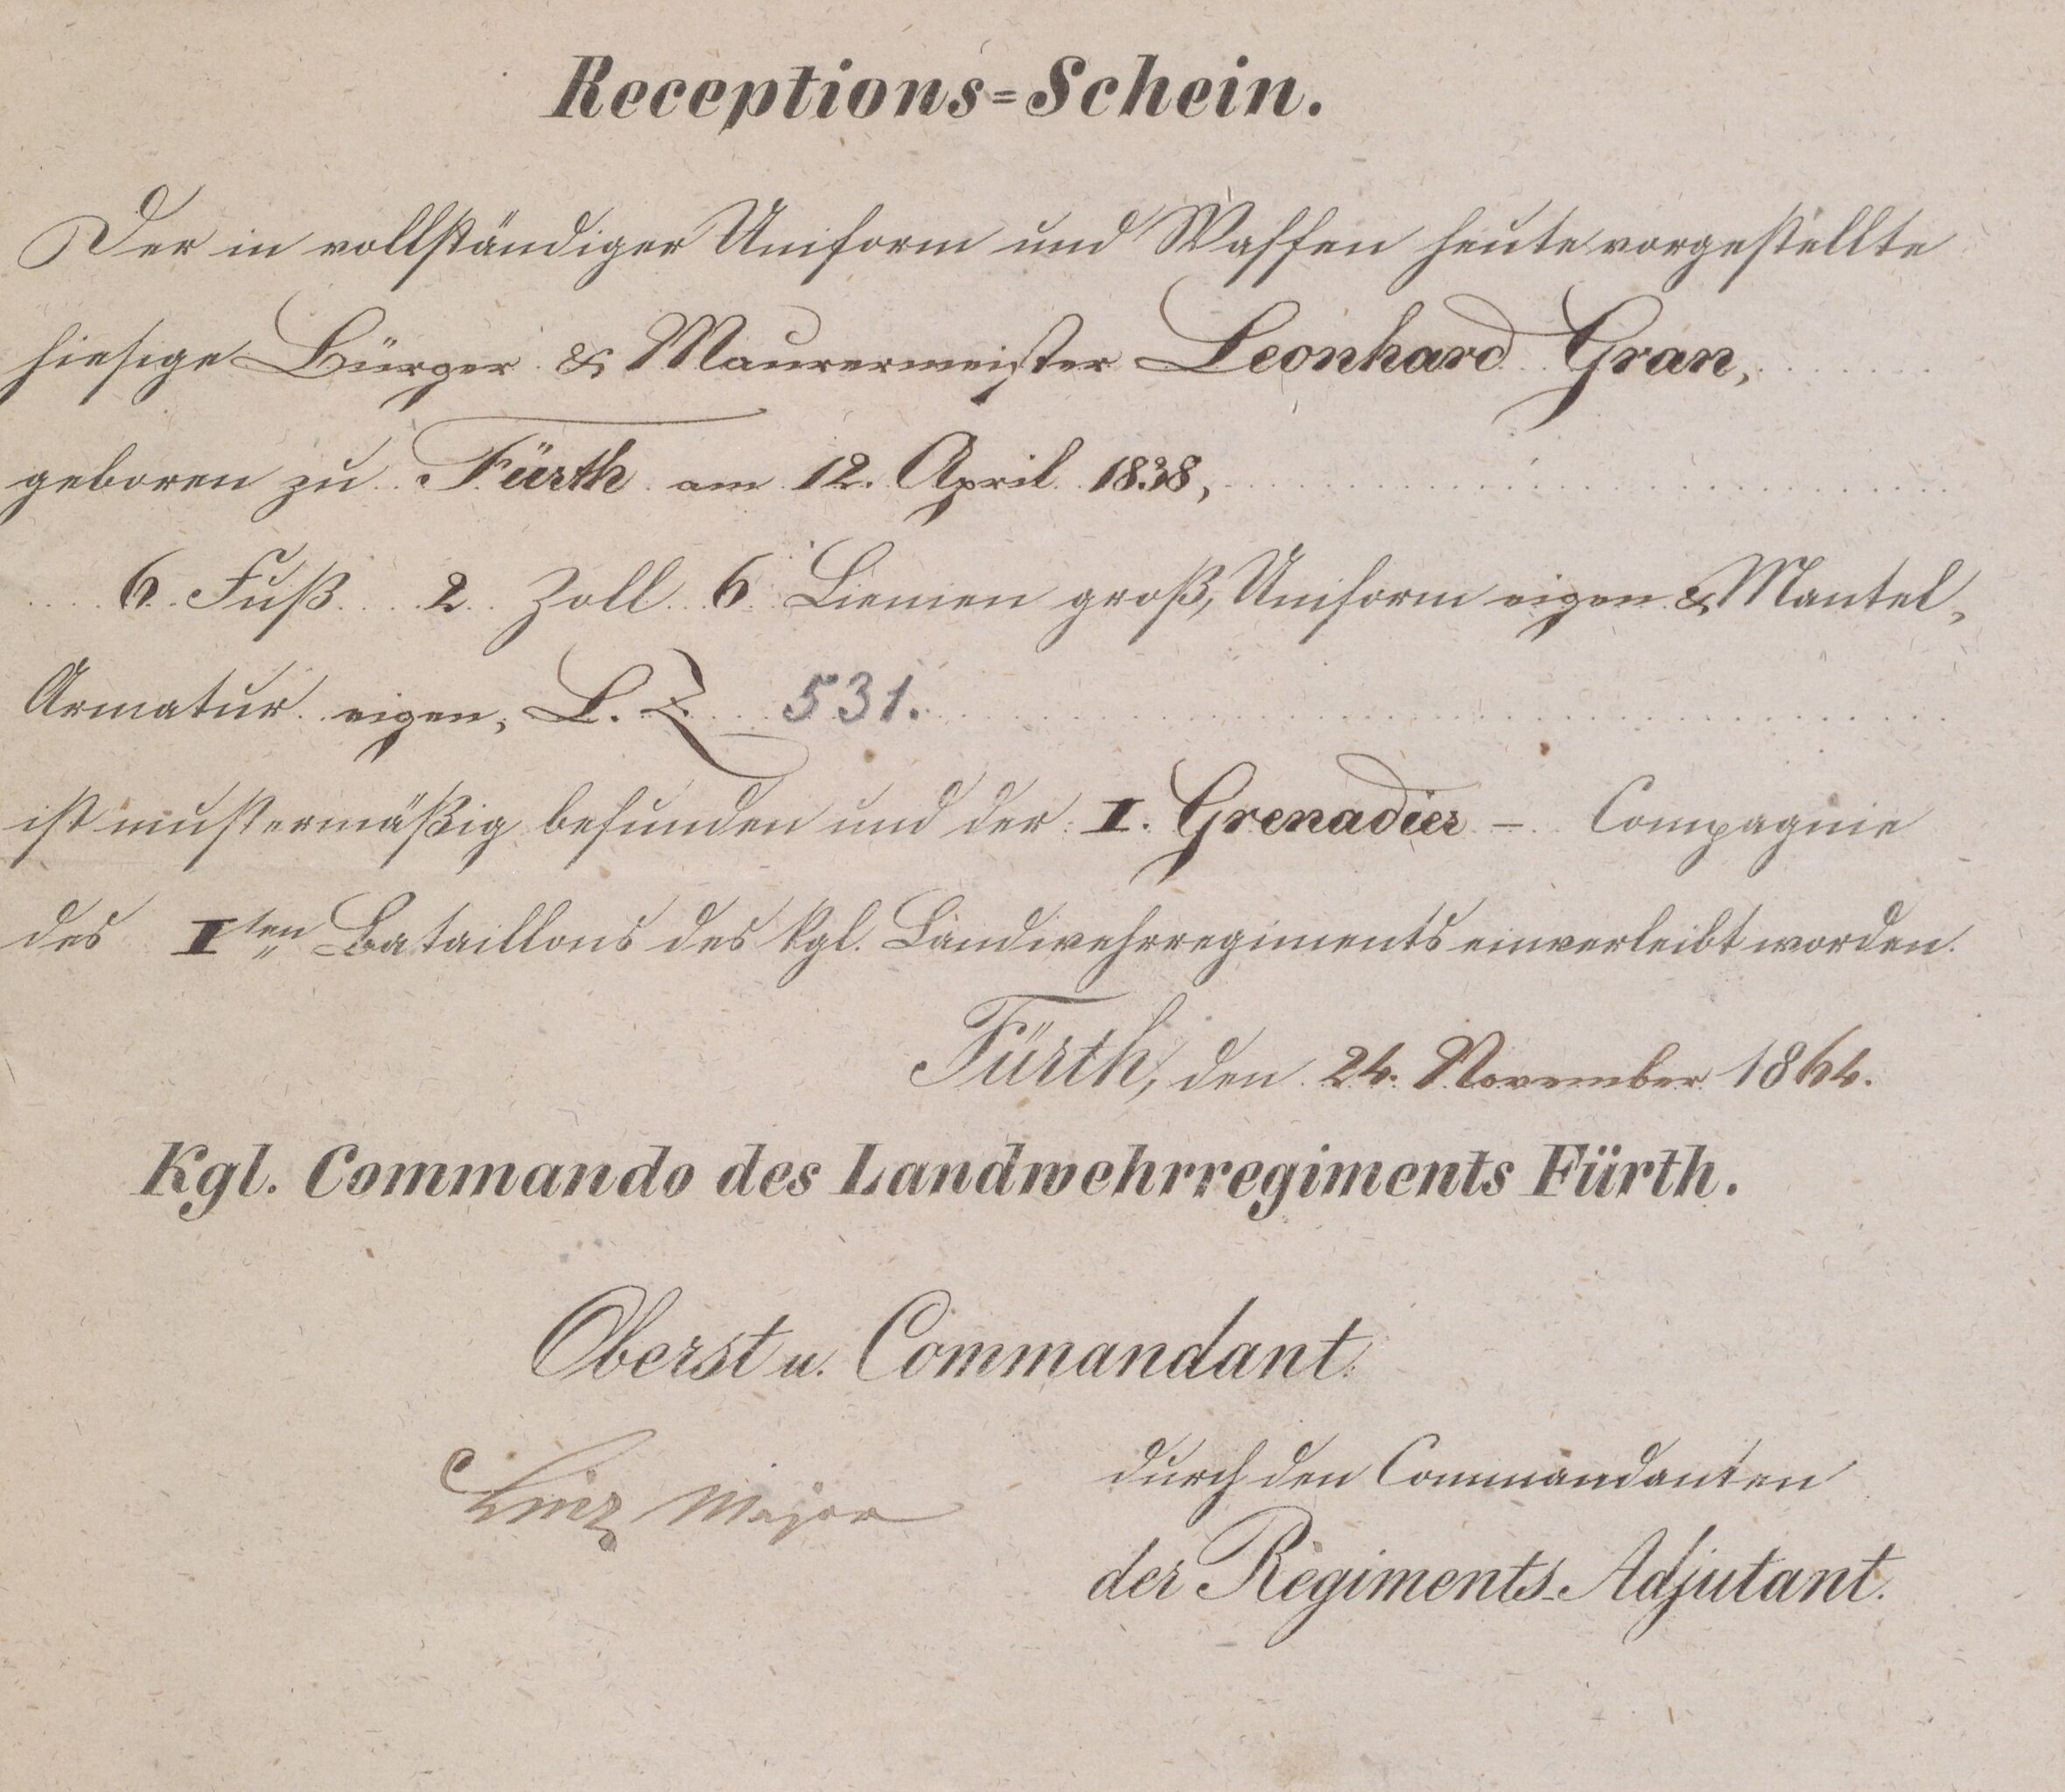 Receptions=Schein.
Der in vollständiger Uniform und Waffen heute vorgestellte
hiesige Bürger & Maurermeister Leonhard Gran,
geboren zu Fürth am 12. April 1838,
6 Fuß 2 Zoll 6 Linien groß, Uniform eigen & Mantel,
Armatur eigen, L. Z. 531.
ist mustermäßig befunden und der I. Grenadier - Compagnie
des Iten Bataillons des kgl. Landwehrregiments einverleibt worden.
Fürth, den 24. November 1864.
Kgl. Commando des Landwehrregiments Fürth.
Oberst u. Commandant.
Major
durch den Commandanten
der Regiments-Adjutant.